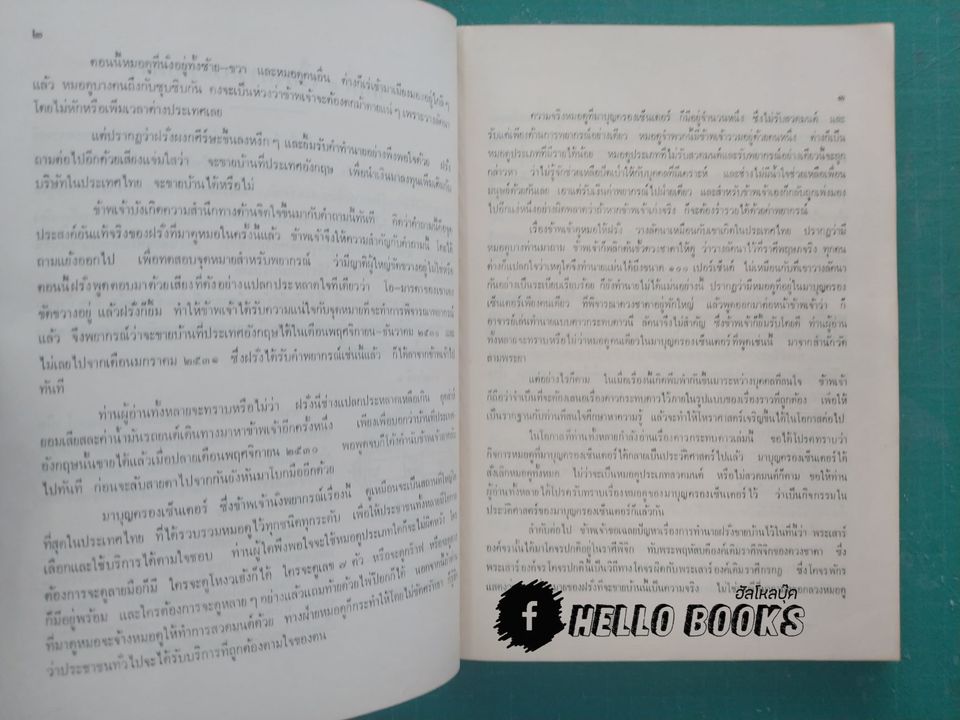 ๒
ตอนนี้หมอดูที่นั่งอยู่ทั้งซ้าย-ขวา และหมอดูคนอื่น ต่างก็เร่เข้ามาเมียงมองอยู่ใกล้ ๆ
แล้ว หมอดูบางคนถึงกับซุบซิบกัน คงจะเป็นห่วงว่าข้าพเจ้าจะต้องตกม้าตายแน่ ๆ เพราะวางลัคนา
โดยไม่หักหรือเพิ่มเวลาต่างประเทศเลย
แต่ปรากฏว่าฝรั่งผงกศีรษะขึ้นลงหงึก ๆ และยิ้มรับคำทำนายอย่างพึงพอใจด้วย ฝรั่ง
ถามต่อไปอีกด้วยเสียงแจ่มใสว่า จะขายบ้านที่ประเทศอังกฤษ เพื่อนำเงินมาลงทุนเพิ่มเติมกับ
บริษัทในประเทศไทย จะขายบ้านได้หรือไม่
ข้าพเจ้าบังเกิดความสำนึกทางด้านจิตใจขึ้นมากับคำถามนี้ทันที คิดว่าคำถามนี้คือจุด
ประสงค์อันแท้จริงของฝรั่งที่มาดูหมอในครั้งนี้แล้ว ข้าพเจ้าจึงให้ความสำคัญกับคำถามนี้ โดยให้
ถามแย้งออกไป เพื่อทดสอบจุดหมายสำหรับพยากรณ์ ว่ามีญาติผู้ใหญ่ขัดขวางอยู่ไม่ใช่หรือ
ตอนนี้ฝรั่งพูดตอบมาด้วยเสียงที่ดังอย่างแปลกประหลาดใจทีเดียวว่า โอ-มารดาของเขาเอง
ขัดขวางอยู่ แล้วฝรั่งก็ยิ้ม ทำให้ข้าพเจ้าได้รับความแน่ใจกับจุดหมายที่จะทำการพิจารณาพยากรณ์
แล้ว จึงพยากรณ์ว่าจะขายบ้านที่ประเทศอังกฤษได้ในเดือนพฤศจิกายน-ธันวาคม ๒๕๓๑ และ
ไม่เลยไปจากเดือนมกราคม ๒๕๓๑ ซึ่งฝรั่งได้รับคำพยากรณ์เช่นนี้แล้ว ก็ได้ลาจากข้าพเจ้าไป
ทันที
ท่านผู้อ่านทั้งหลายจะทราบหรือไม่ว่า ฝรั่งนี่ช่างแปลกประหลาดเหลือเกิน อุตส่าห์
ยอมเสียสละค่าน้ำมันรถยนต์เดินทางมาหาข้าพเจ้าอีกครั้งหนึ่ง เพียงเพื่อบอกว่าบ้านที่ประเทศ
อังกฤษนั้นขายได้แล้วเมื่อปลายเดือนพฤศจิกายน ๒๕๓๑ พอพูดจบก็โค้งคำนับข้าพเจ้า
ไปทันที ก่อนจะลับสายตาไปจากกันยังหันมาโบกมืออีกด้วย
มาบุญครองเซ็นเตอร์ ซึ่งข้าพเจ้านั่งพยากรณ์เรื่องนี้ ดูเหมือนจะเป็นสถานที่ใหญ่โต
ที่สุดในประเทศไทย ที่ได้รวบรวมหมอดูไว้ทุกชนิดทุกระดับ เพื่อให้ประชาชนทั้งหลายมีโอกาส
เลือกและใช้บริการได้ตามใจชอบ ท่านผู้ใดพึงพอใจจะใช้หมอดูประเภทใดก็จะไม่ผิดหวัง ใคร
ต้องการจะดูลายมือก็มี ใครจะดูโหงวเฮ้งก็ได้ ใครจะดูเลข ๗ ตัว หรือจะดูกร๊าฟ
ก็มีอยู่พร้อม และใครต้องการจะดูหลาย ๆ อย่างแล้วแถมท้ายด้วยไพ่ป๊อกก็ได้ นอกจากนี้
ที่มาดูหมอจะจ้างหมอดูให้ทำการสวดมนต์ด้วย ทางฝ่ายหมอดูก็กระทำให้โดยไม่ขัดศรัทธา
ว่าประชาชนทั่วไปจะได้รับบริการที่ถูกต้องตามใจของตน
๑
ความจริงหมอดูที่มาบุญครองเซ็นเตอร์ ก็มีอยู่จำนวนหนึ่ง ซึ่งไม่รับสวดมนต์ และ
รับแต่เพียงด้านการพยากรณ์อย่างเดียว หมอดูจำพวกนี้มีข้าพเจ้ารวมอยู่ด้วยคนหนึ่ง ต่างก็เป็น
หมอดูประเภทที่มีรายได้น้อย หมอดูประเภทที่ไม่รับสวดมนต์และรับพยากรณ์อย่างเดียวนี้จะถูก
กล่าวหา ว่าไม่รู้จักช่วยเหลือบัดเป่าให้กับบุคคลที่มีเคราะห์ และช่างไม่มีน้ำใจช่วยเหลือเพื่อน
มนุษย์ด้วยกันเลย เอาแต่รับเงินค่าพยากรณ์ไปฝ่ายเดียว และสำหรับข้าพเจ้าเองก็กลับถูกเพ่งมอง
ไปอีกแง่หนึ่งอย่างผิดพลาดว่าถ้าหากข้าพเจ้าเก่งจริง ก็จะต้องร่ำรวยได้ด้วยค่าพยากรณ์
เรื่องข้าพเจ้าดูหมอให้ฝรั่ง วางลัคนาเหมือนกับเขาเกิดในประเทศไทย ปรากฏว่ามี
หมอดูบางท่านมาถาม ข้าพเจ้าก็พลิกต้นขั้วดวงชาตาให้ดู ว่าวางลัคนาไว้ที่ราศีพฤษภจริง ทุกคน
ต่างก็แปลกใจว่าเหตุใดจึงทำนายแม่นได้ถึงขนาด ๑๐๐ เปอร์เซ็นต์ ไม่เหมือนกับที่เขาวางลัคนา
กันอย่างเป็นระเบียบเรียบร้อย ก็ยังทำนายไม่ได้แม่นอย่างนี้ ปรากฏว่ามีหมอดูที่อยู่ในมาบุญครอง
เซ็นเตอร์เพียงคนเดียว ที่พิจารณาดวงชาตาอยู่พักใหญ่ แล้วพูดออกมาต่อหน้าข้าพเจ้าว่า ก็
อาจารย์เล่นทำนายแบบดาวกระทบดาวนี่ ลัคนาจึงไม่สำคัญ ซึ่งข้าพเจ้าก็ยิ้มรับโดยดี ท่านผู้อ่าน
ทั้งหลายจะทราบหรือไม่ว่าหมอดูคนเดียวในมาบุญครองเซ็นเตอร์ที่พูดเช่นนี้ มาจากสำนักวัด
สามพระยา
แต่อย่างไรก็ตาม ในเมื่อเรื่องนี้เกิดพิมพ์ากันขึ้นมาระหว่างบุคคลที่สนใจ ข้าพเจ้า
ก็ถือว่าจำเป็นที่จะต้องเสนอเรื่องดาวกระทบดาวไว้ภายในรูปแบบของเรื่องราวที่ถูกต้อง เพื่อให้
เป็นรากฐานกับท่านที่สนใจศึกษาหาความรู้ แล้วจะทำให้โหราศาสตร์เจริญขึ้นได้ในโอกาสต่อไป
ในโอกาสที่ท่านทั้งหลายกำลังอ่านเรื่องดาวกระทบดาวเล่มนี้ ขอได้โปรดทราบว่า
กิจการหมอดูที่มาบุญครองเซ็นเตอร์ได้กลายเป็นประวัติศาสตร์ไปแล้ว มาบุญครองเซ็นเตอร์ได้
สั่งเลิกหมอดูทั้งหมด ไม่ว่าจะเป็นหมอดูประเภทสวดมนต์ หรือไม่สวดมนต์ก็ตาม ขอให้ท่าน
ผู้อ่านทั้งหลายได้โปรดรับทราบเรื่องหมอดูของมาบุญครองเซ็นเตอร์ไว้ ว่าเป็นกิจกรรมใน
ประวัติศาสตร์ของมาบุญครองเซ็นเตอร์ก็แล้วกัน
ลำดับต่อไป ข้าพเจ้าขอเฉลยปัญหาเรื่องการทำนายฝรั่งขายบ้านไว้ในที่นี้ว่า พระเสาร์
องค์จรนั้นได้มาโคจรปกติอยู่ในราศีพิจิก ทับพระพฤหัสบดีองค์เดิมราศีพิจิกของดวงชาตา ซึ่ง
พระเสาร์องค์จรโคจรปกติเป็นวิถีทางโคจรผิดกับพระเสาร์องค์เดิมราศีกรกฎ ซึ่งโคจรพักร์
แสดงว่า ความมุ่งหมายของฝรั่งที่จะขายบ้านนี้เป็นความจริง
ฮัลโหลบุ๊ค
f HELLO BOOKS